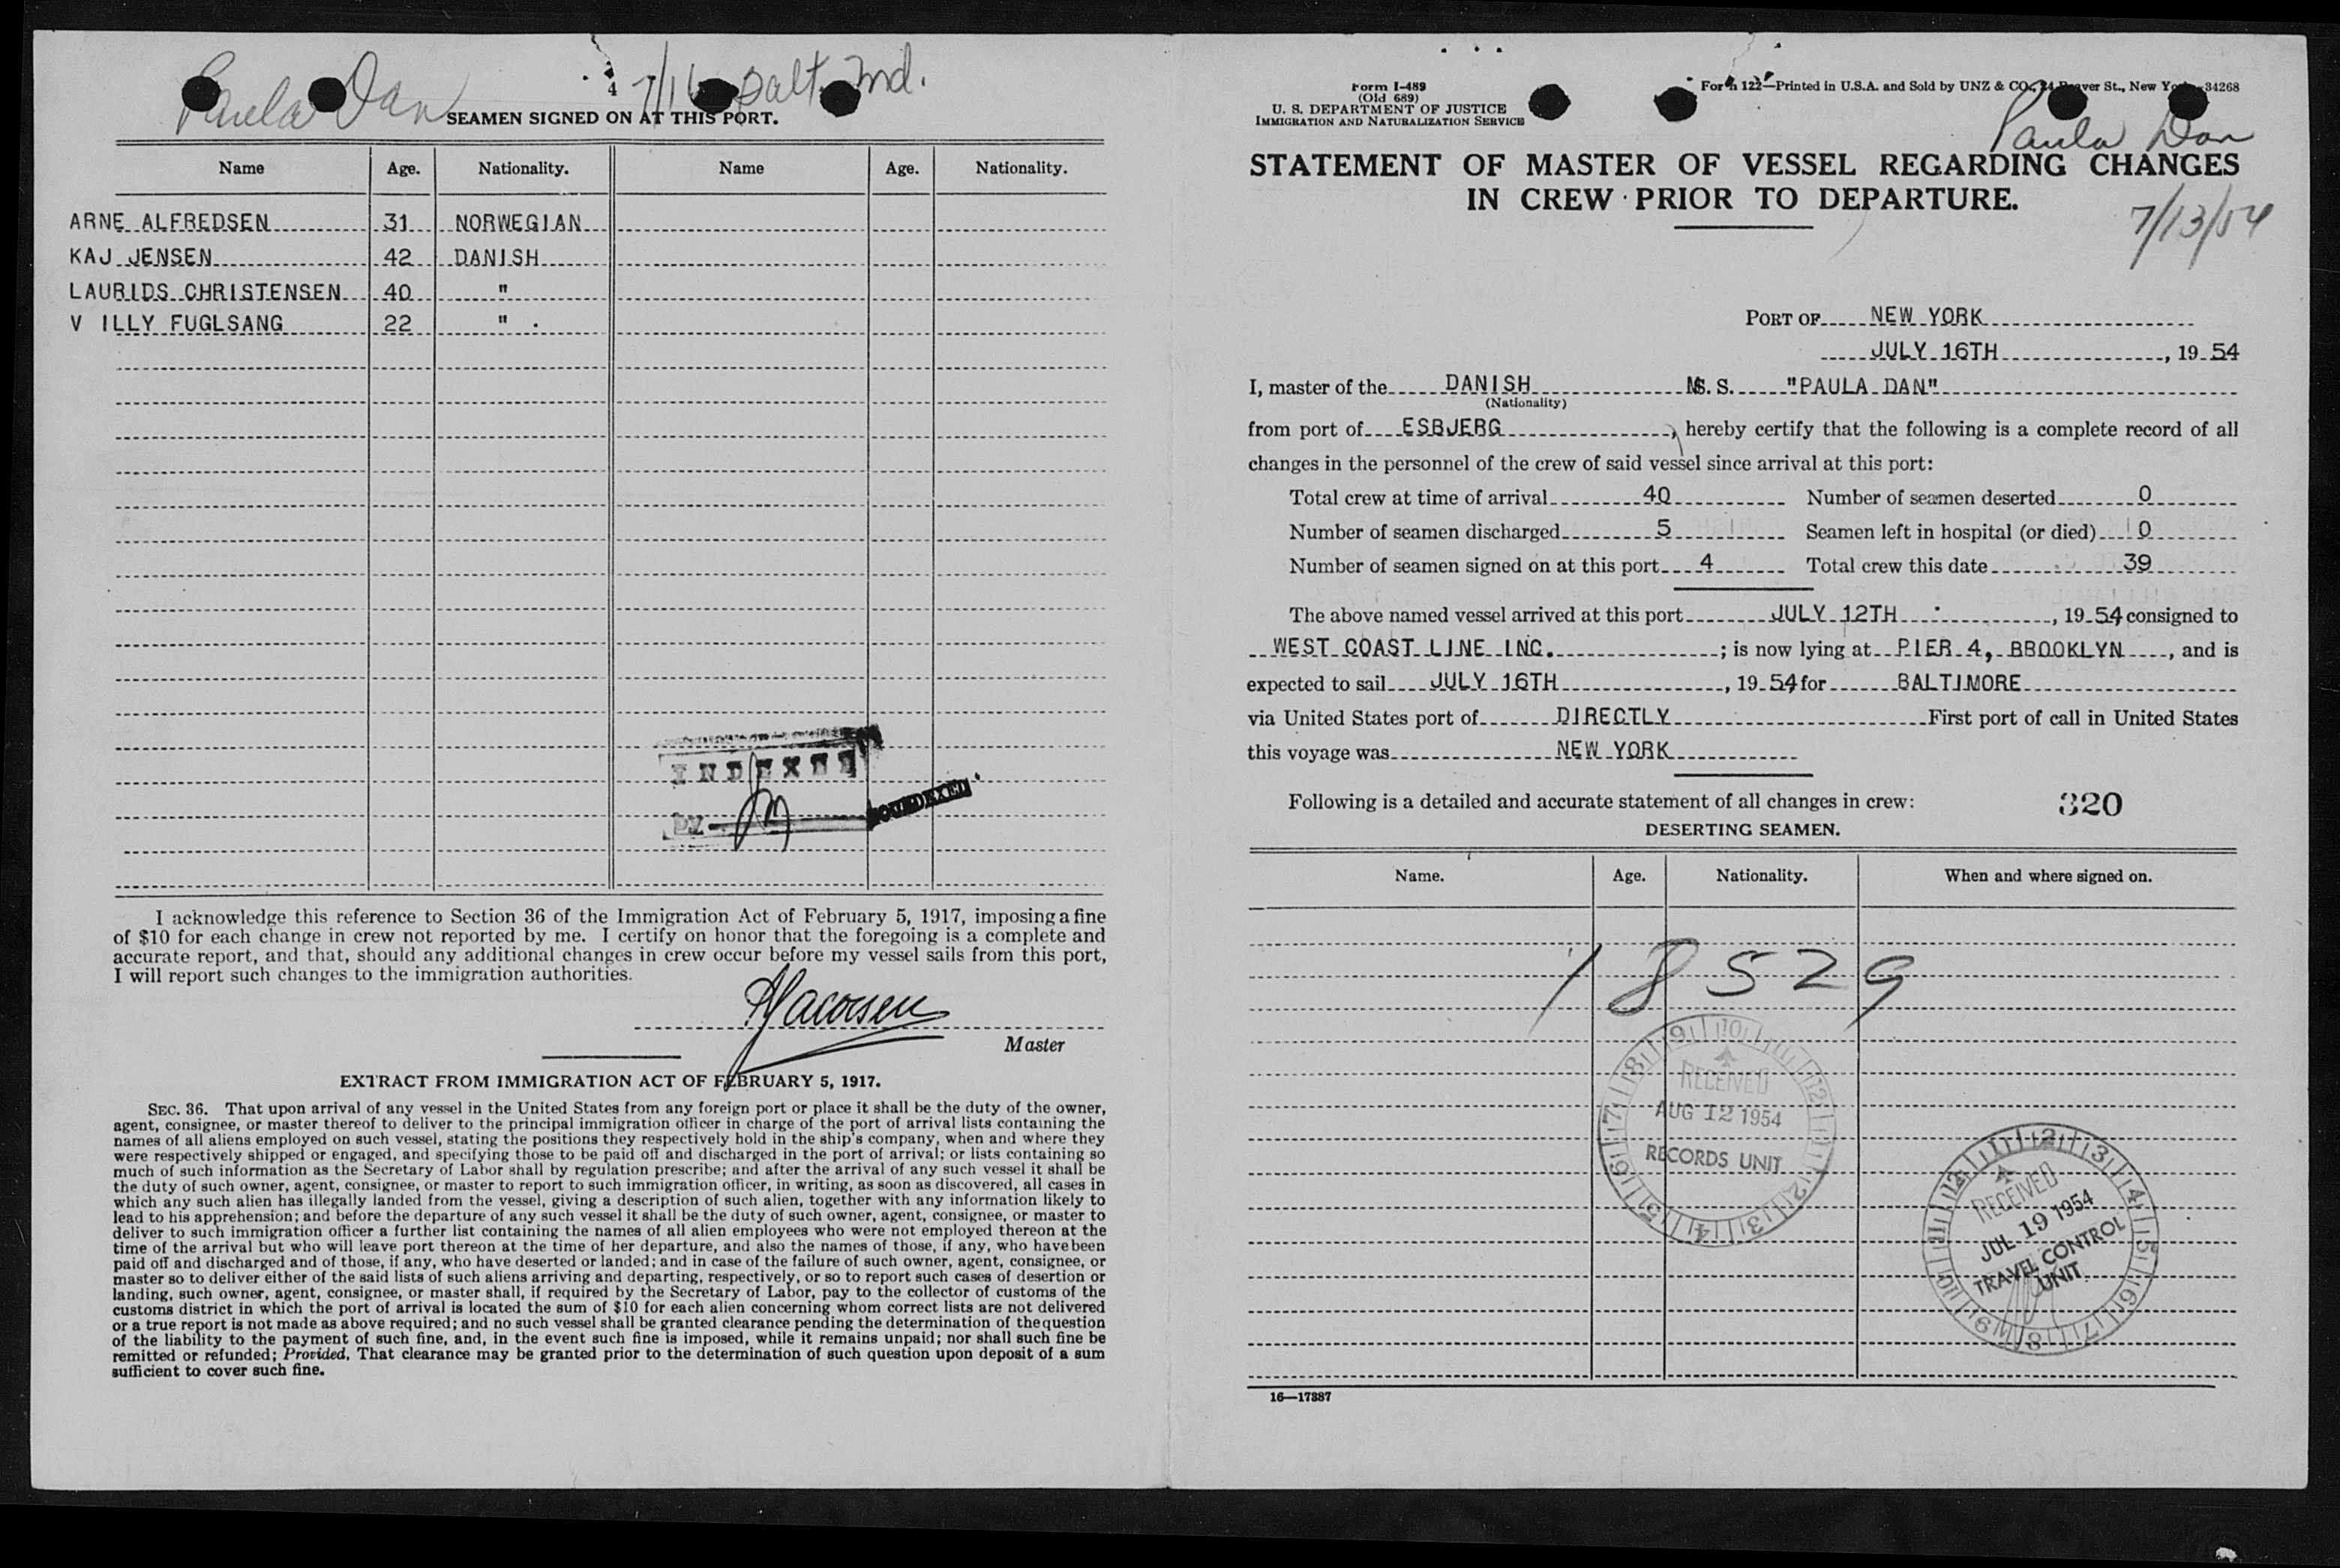 Paula Dan
7/16 Balt. Md.
4
SEAMEN SIGNED ON AT THIS PORT.
Name Age. Nationality. Name Age. Nationality.
ARNE ALFREDSEN 31 NORWEGIAN
KAJ JENSEN 42 DANISH
LAURIDS CHRISTENSEN 40 "
V ILLY FUGLSANG 22 " .
INDEXED
BY
I acknowledge this reference to Section 36 of the Immigration Act of February 5, 1917, imposing a fine
of $10 for each change in crew not reported by me. I certify on honor that the foregoing is a complete and
accurate report, and that, should any additional changes in crew occur before my vessel sails from this port,
I will report such changes to the immigration authorities.
Master
EXTRACT FROM IMMIGRATION ACT OF FEBRUARY 5, 1917.
SEC. 36. That upon arrival of any vessel in the United States from any foreign port or place it shall be the duty of the owner,
agent, consignee, or master thereof to deliver to the principal immigration officer in charge of the port of arrival lists containing the
names of all aliens employed on such vessel, stating the positions they respectively hold in the ship's company, when and where they
were respectively shipped or engaged, and specifying those to be paid off and discharged in the port of arrival; or lists containing so
much of such information as the Secretary of Labor shall by regulation prescribe; and after the arrival of any such vessel it shall be
the duty of such owner, agent, consignee, or master to report to such immigration officer, in writing, as soon as discovered, all cases in
which any such alien has illegally landed from the vessel, giving a description of such alien, together with any information likely to
lead to his apprehension; and before the departure of any such vessel it shall be the duty of such owner, agent, consignee, or master to
deliver to such immigration officer a further list containing the names of all alien employees who were not employed thereon at the
time of the arrival but who will leave port thereon at the time of her departure, and also the names of those, if any, who have been
paid off and discharged and of those, if any, who have deserted or landed; and in case of the failure of such owner, agent, consignee, or
master so to deliver either of the said lists of such aliens arriving and departing, respectively, or so to report such cases of desertion or
landing, such owner, agent, consignee, or master shall, if required by the Secretary of Labor, pay to the collector of customs of the
customs district in which the port of arrival is located the sum of $10 for each alien concerning whom correct lists are not delivered
or a true report is not made as above required; and no such vessel shall be granted clearance pending the determination of the question
of the liability to the payment of such fine, and, in the event such fine is imposed, while it remains unpaid; nor shall such fine be
remitted or refunded; Provided, That clearance may be granted prior to the determination of such question upon deposit of a sum
sufficient to cover such fine.
Form I-489
(Old 689)
U. S. DEPARTMENT OF JUSTICE
IMMIGRATION AND NATURALIZATION SERVICE
Form 122—Printed in U.S.A. and Sold by UNZ & CO., 24 Beaver St., New York—34268
Paula Dan
STATEMENT OF MASTER OF VESSEL REGARDING CHANGES
IN CREW PRIOR TO DEPARTURE.
7/13/54
PORT OF NEW YORK
JULY 16TH, 19 54
I, master of the DANISH M.S. "PAULA DAN"
(Nationality)
from port of ESBJERG, hereby certify that the following is a complete record of all
changes in the personnel of the crew of said vessel since arrival at this port:
Total crew at time of arrival 40 Number of seamen deserted 0
Number of seamen discharged 5 Seamen left in hospital (or died) 0
Number of seamen signed on at this port 4 Total crew this date 39
The above named vessel arrived at this port JULY 12TH, 19 54 consigned to
WEST COAST LINE INC.; is now lying at PIER 4, BROOKLYN, and is
expected to sail JULY 16TH, 19 54 for BALTIMORE
via United States port of DIRECTLY First port of call in United States
this voyage was NEW YORK
Following is a detailed and accurate statement of all changes in crew: 320
DESERTING SEAMEN.
Name. Age. Nationality. When and where signed on.
18529
RECEIVED
AUG 12 1954
RECORDS UNIT
RECEIVED
JUL 19 1954
TRAVEL CONTROL
UNIT
16—17387